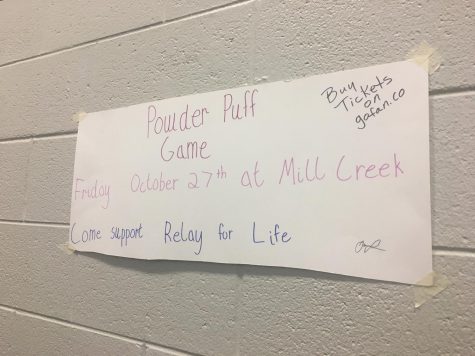 Powder Puff
Game
Friday October 27th at Mill Creek
Come support Relay for Life
Buy
Tickets
on
gofan.co